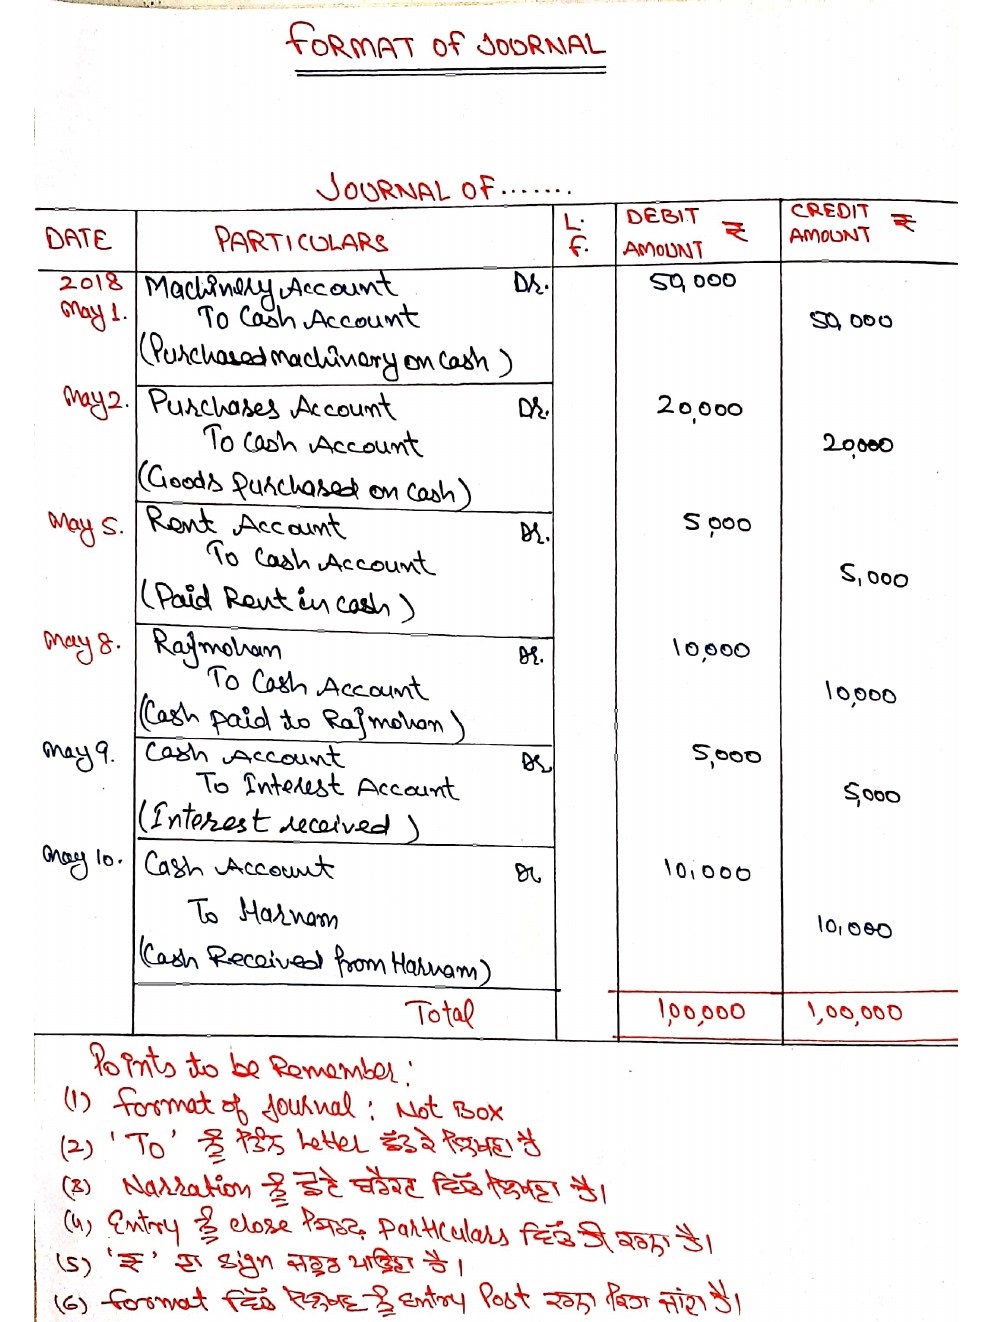 FORMAT OF JOURNAL
JOURNAL OF.......
DATE PARTICULARS L.F. DEBIT AMOUNT ₹ CREDIT AMOUNT ₹
2018 Machinery Account Dr. 50,000
May 1. To Cash Account 50,000
(Purchased machinery on cash)
May 2. Purchases Account Dr. 20,000
To Cash Account 20,000
(Goods purchased on cash)
May 5. Rent Account Dr. 5,000
To Cash Account 5,000
(Paid Rent in cash)
May 8. Rajmohan Dr. 10,000
To Cash Account 10,000
(Cash paid to Rajmohan)
May 9. Cash Account Dr. 5,000
To Interest Account 5,000
(Interest received)
May 10. Cash Account Dr 10,000
To Harnam 10,000
(Cash Received from Harnam)
Total 1,00,000 1,00,000
Points to be Remember:
(1) format of journal: Not Box
(2) 'To' ਨੂੰ ਤਿੰਨ Letter ਛੱਡ ਕੇ ਲਿਖਣਾ ਹੈ
(3) Narration ਨੂੰ ਛੋਟੇ ਬਰੈਕਟ ਵਿੱਚ ਲਿਖਣਾ ਹੈ।
(4) Entry ਨੂੰ close ਸਿਰਫ਼ particulars ਵਿੱਚ ਹੀ ਕਰਨਾ ਹੈ।
(5) '₹' ਦਾ sign ਜਰੂਰ ਪਾਉਣਾ ਹੈ।
(6) format ਵਿੱਚ ਲਿਖਣ ਨੂੰ Entry Post ਕਰਨਾ ਕਿਹਾ ਜਾਂਦਾ ਹੈ।